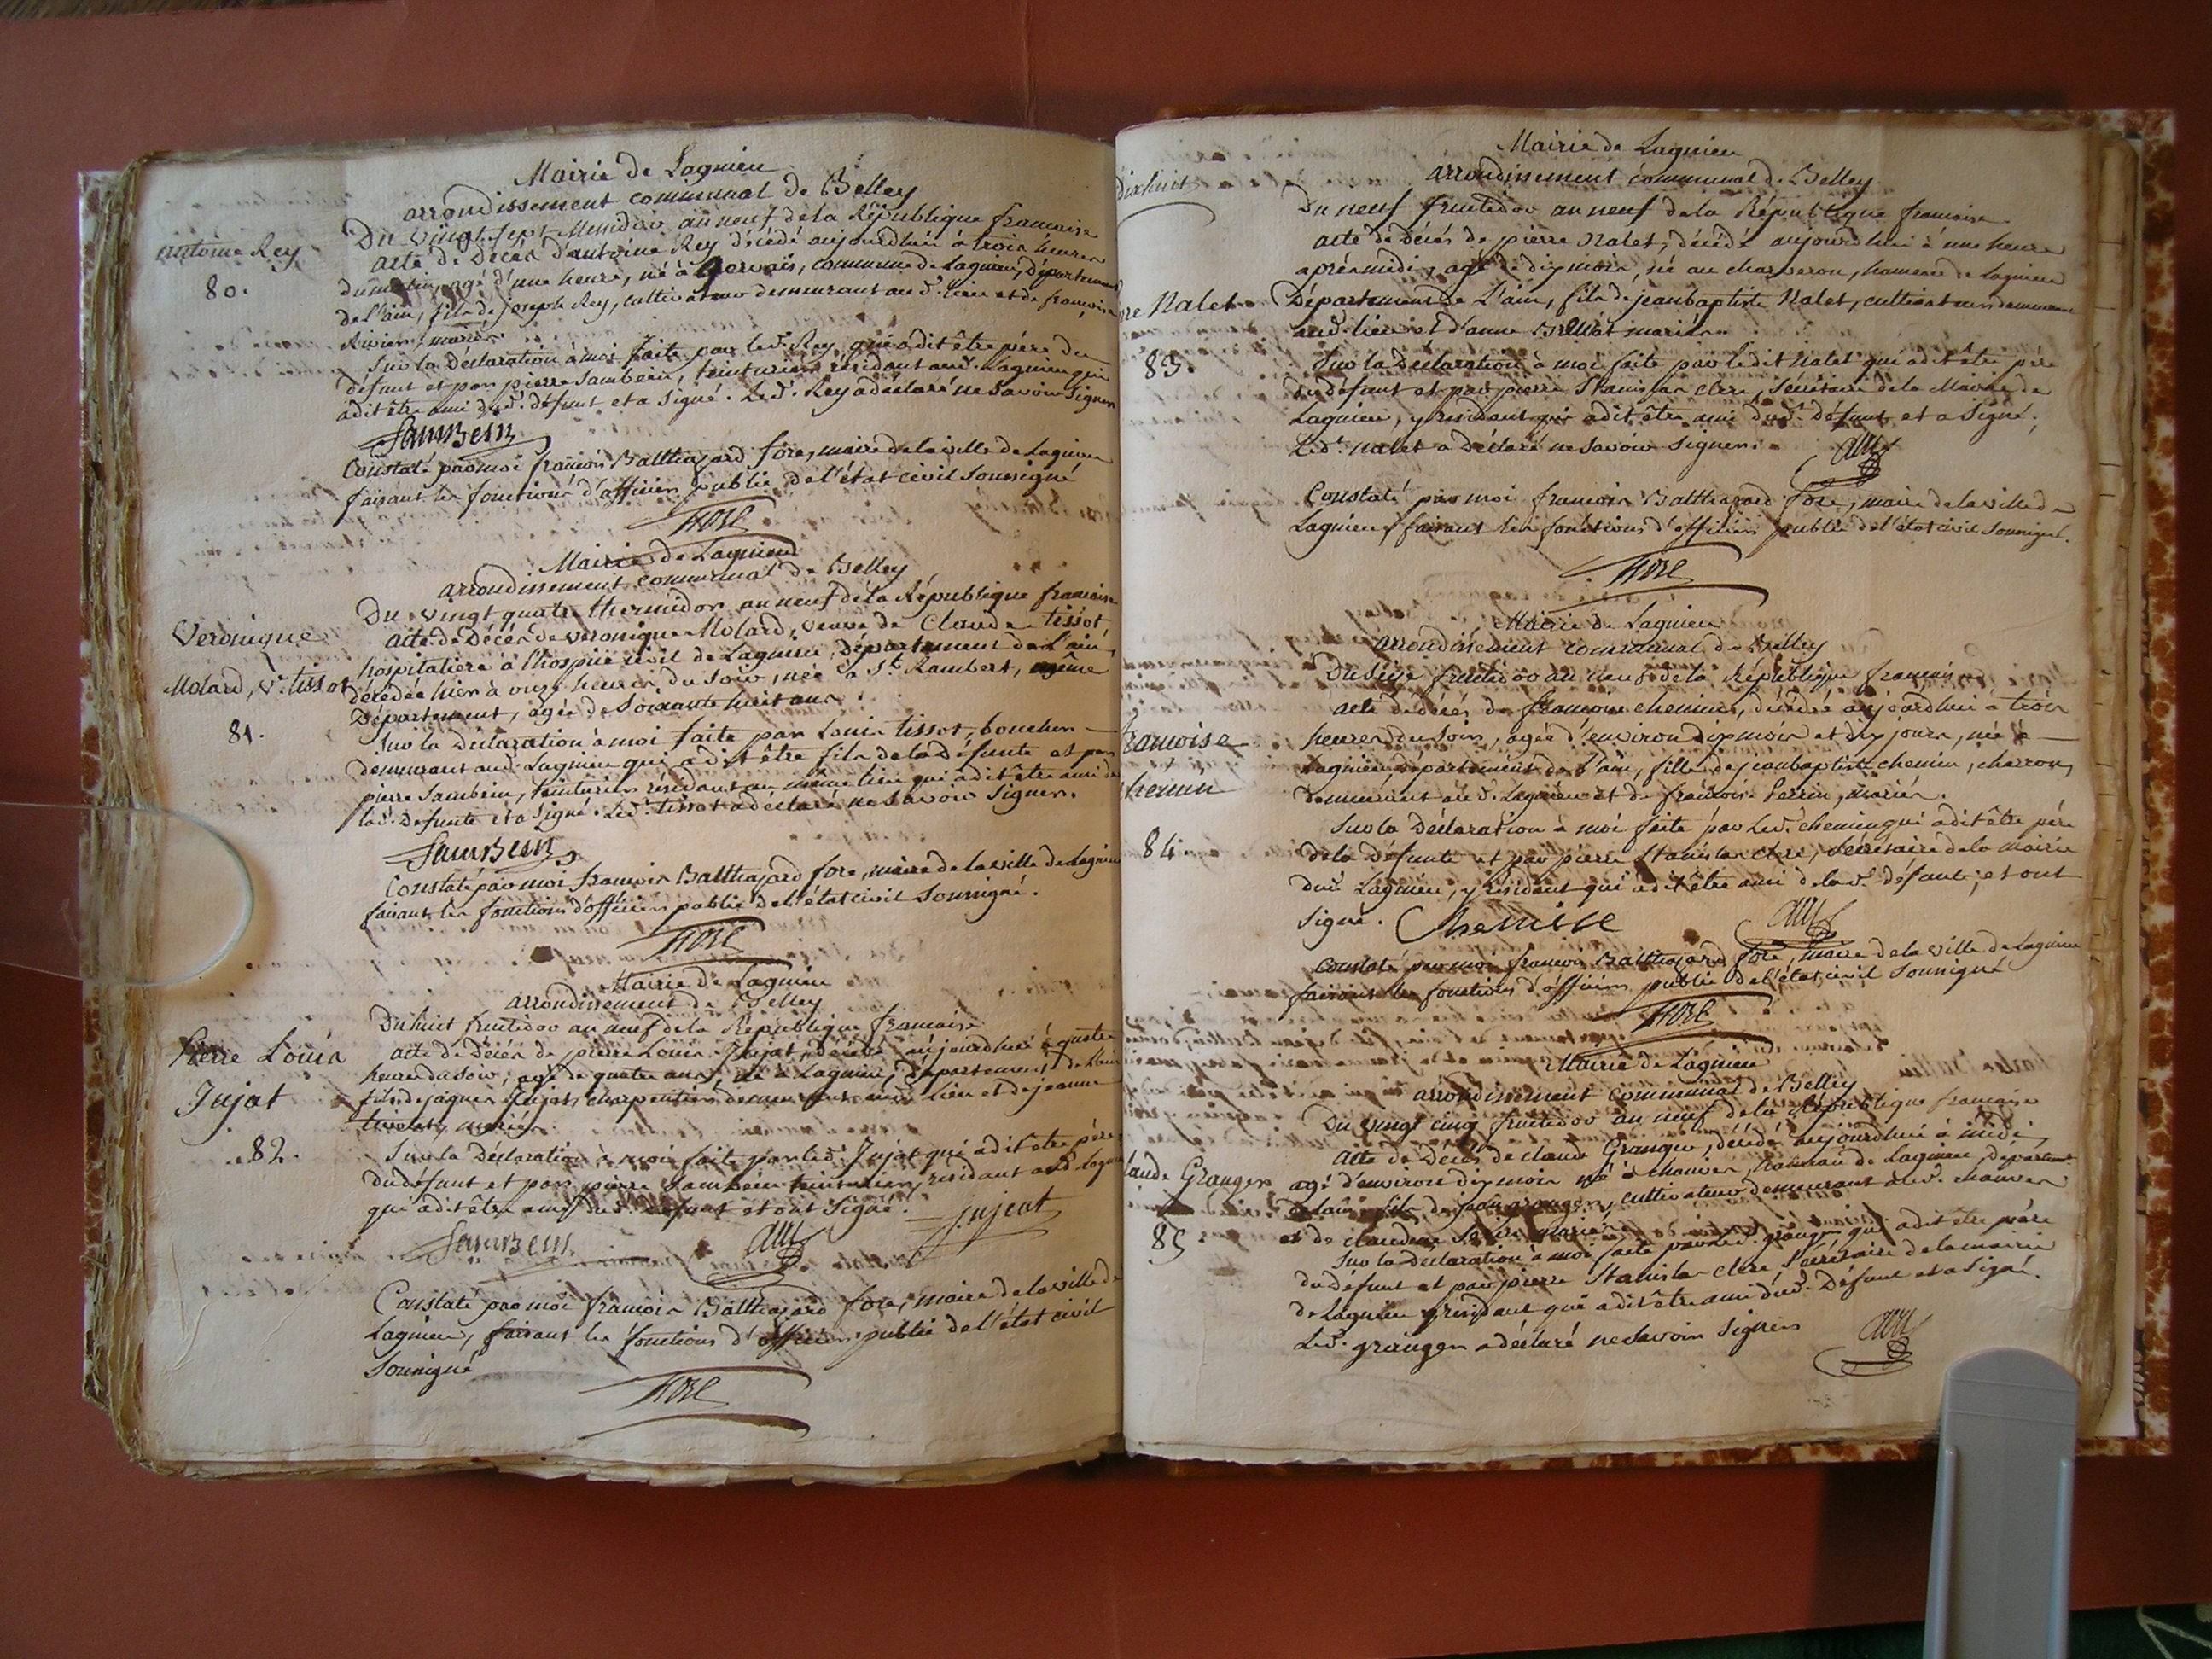 Mairie de Lagnieu
arrondissement communal de Belley
Du vingt sept Messidor an neuf de la République francaise
acte de Décès d'antoine Rey décédé aujourdhui à trois heures
antoine Rey
80.
du matin, agé d'une heure, né à Gorvais, commune de Lagnieu, Département
de l'ain, fils de joseph Rey, cultivateur demeurant aud. lieu et de françoise
Rivier, mariés.
Sur la Déclaration à moi faite par led. Rey qui a dit être père du
défunt et par pierre Sambein, teinturier résidant aud. Lagnieu qui
a dit être ami dud. défunt et a signé. Led. Rey a déclaré ne savoir signer
Sambein
Constaté par moi françois Balthazard fore, maire de la ville de Lagnieu
faisant les fonctions d'officier public de l'état civil soussigné
Fore
Mairie de Lagnieu
arrondissement communal de Belley
Du vingt quatre thermidor an neuf de la République francaise
acte de Décès de veronique Molard, veuve de Claude tissot
Veronique
Molard, Ve. tissot
81.
hospitaliere à l'hospice civil de Lagnieu, département de l'ain,
décédée hier à onze heures du soir, née à St. Rambert, même
Département, agée de soixante huit ans
Sur la Déclaration à moi faite par Louis tissot, boucher
demeurant aud. Lagnieu qui a dit être fils de la défunte et par
pierre Sambein, teinturier résidant au même lieu qui a dit être ami de
lad. Défunte et a signé. Led. tissot a déclaré ne savoir signer.
Sambein
Constaté par moi françois Balthazard fore, maire de la ville de Lagnieu
faisant les fonctions d'officier public de l'état civil soussigné.
Fore
Mairie de Lagnieu
arrondissement de Belley
Du huit fructidor an neuf de la République francaise
acte de Décès de pierre Louis Jujat, décédé aujourdhui à quatre
Pierre Louis
Jujat
82.
heures du soir, agé de quatre ans, né à Lagnieu, Département de l'ain
fils de jaques Jujat, charpentier demeurant aud. Lieu et de jeanne
mariés
Sur la Déclaration à moi faite par led. Jujat qui a dit être père
du défunt et par pierre Sambein teinturier, résidant aud. Lagnieu
qui a dit être ami dud. défunt et ont signé.
Sambein
jujat
Constaté par moi françois Balthazard fore, maire de la ville de
Lagnieu, faisant les fonctions d'officier public de l'état civil
soussigné
Fore
Mairie de Lagnieu
arrondissement communal de Belley
dixhuit
Du neuf fructidor an neuf de la République francaise
acte de Décès de pierre Nalet, décédé aujourdhui à une heure
après midi, agé de dix mois, né au charveron, hameau de Lagnieu
re Nalet
83.
Département de L'ain, fils de jean baptiste Nalet, cultivateur demeurant
aud. lieu et d'anne mariés
Sur la Déclaration à moi faite par ledit Nalet qui a dit être père
du défunt et par pierre Stanislas clerc, Secrétaire de la Mairie de
Lagnieu, y résidant qui a dit être ami dud. défunt et a signé.
Led. nalet a Déclaré ne savoir signer.
Constaté par moi françois Balthazard fore, maire de la ville de
Lagnieu, faisant les fonctions d'officier public de l'état civil soussigné.
Fore
Mairie de Lagnieu
arrondissement communal de Belley
Du seize fructidor an neuf de la République francaise
acte de décès de francoise chemin, décédée aujourdhui à trois
rancoise
hemin
84.
heures du soir, agée d'environ dix mois et dix jours, née à
Lagnieu, département de l'ain, fille de jean baptiste chemin, charron,
demeurant aud. Lagnieu et de francoise Perrin, mariés.
Sur la Déclaration à moi faite par led. chemin qui a dit être père
de la défunte et par pierre Stanislas clerc, Secrétaire de la mairie
dud. Lagnieu, y résidant qui a dit être ami de lad. défunte, et ont
signé. Chemin
Constaté par moi françois Balthazard fore, maire de la ville de Lagnieu
faisant les fonctions d'officier public de l'état civil soussigné
Fore
Mairie de Lagnieu
arrondissement communal de Belley
Du vingt cinq fructidor an neuf de la République francaise
acte de Décès de claude Granger, décédé aujourdhui à midi,
laude Granger
85
agé d'environ dix mois né à chanves, hameau de Lagnieu, département
de l'ain fils de jean granger, cultivateur demeurant aud. chanves
et de claudine mariés
Sur la déclaration à moi faite par led. granger qui a dit être père
du défunt et par pierre Stanislas clerc Secrétaire de la mairie
de Lagnieu y résidant qui a dit être ami dud. Défunt et a signé.
Led. granger a déclaré ne savoir signer